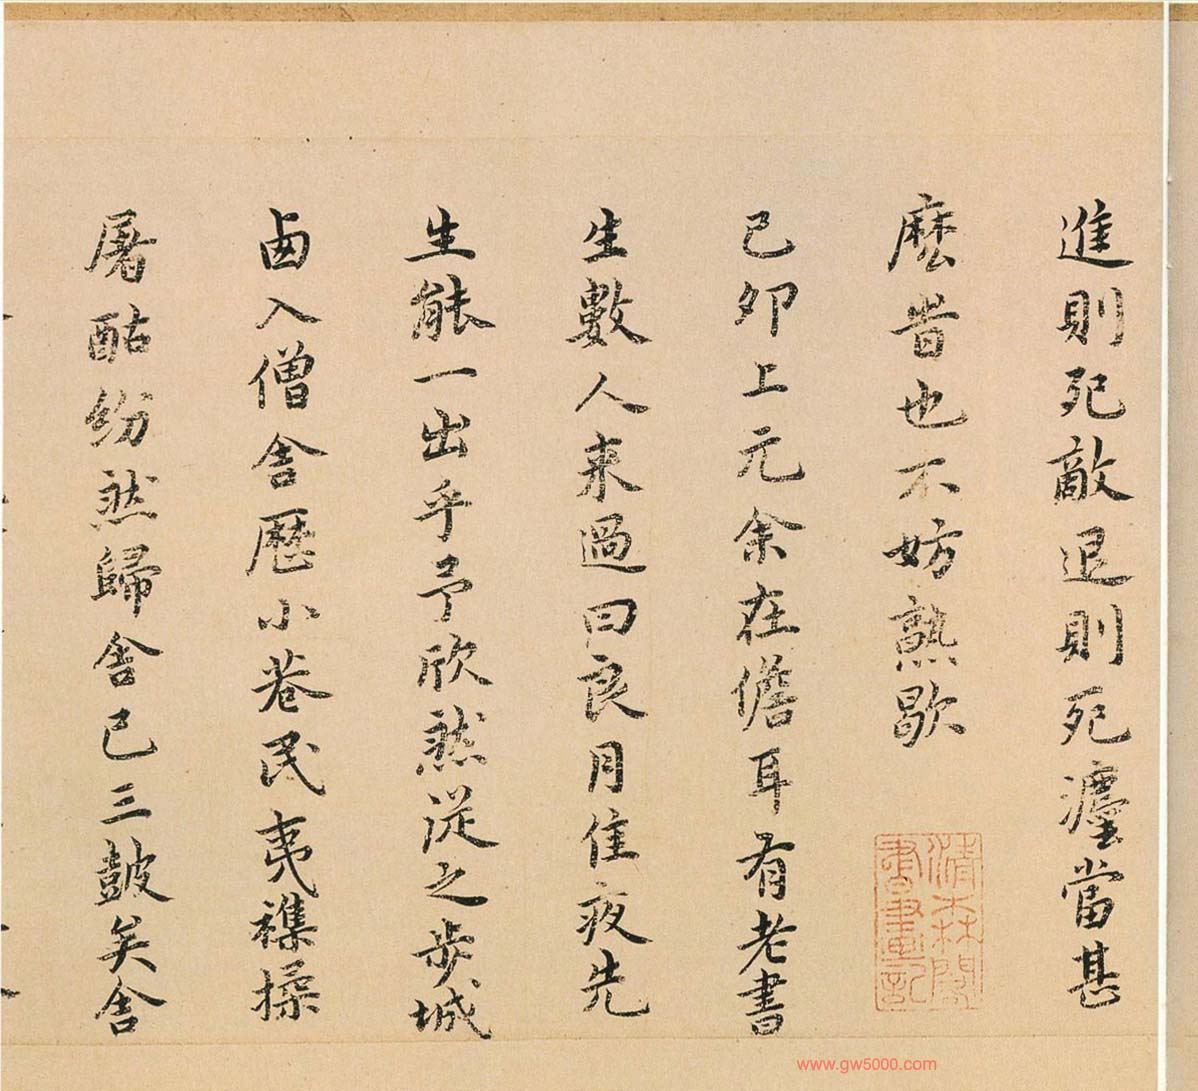 進則死敵退則死㢓當甚
麽昔也不妨熟歇
己夘上元余在儋耳有老書
生數人来過曰良月佳夜先
生能一出乎予欣然従之步城
西入僧舎歴小巷民夷襍揉
屠酤紛然歸舎已三皷矣舎
清森閣書畫記
www.gw5000.com